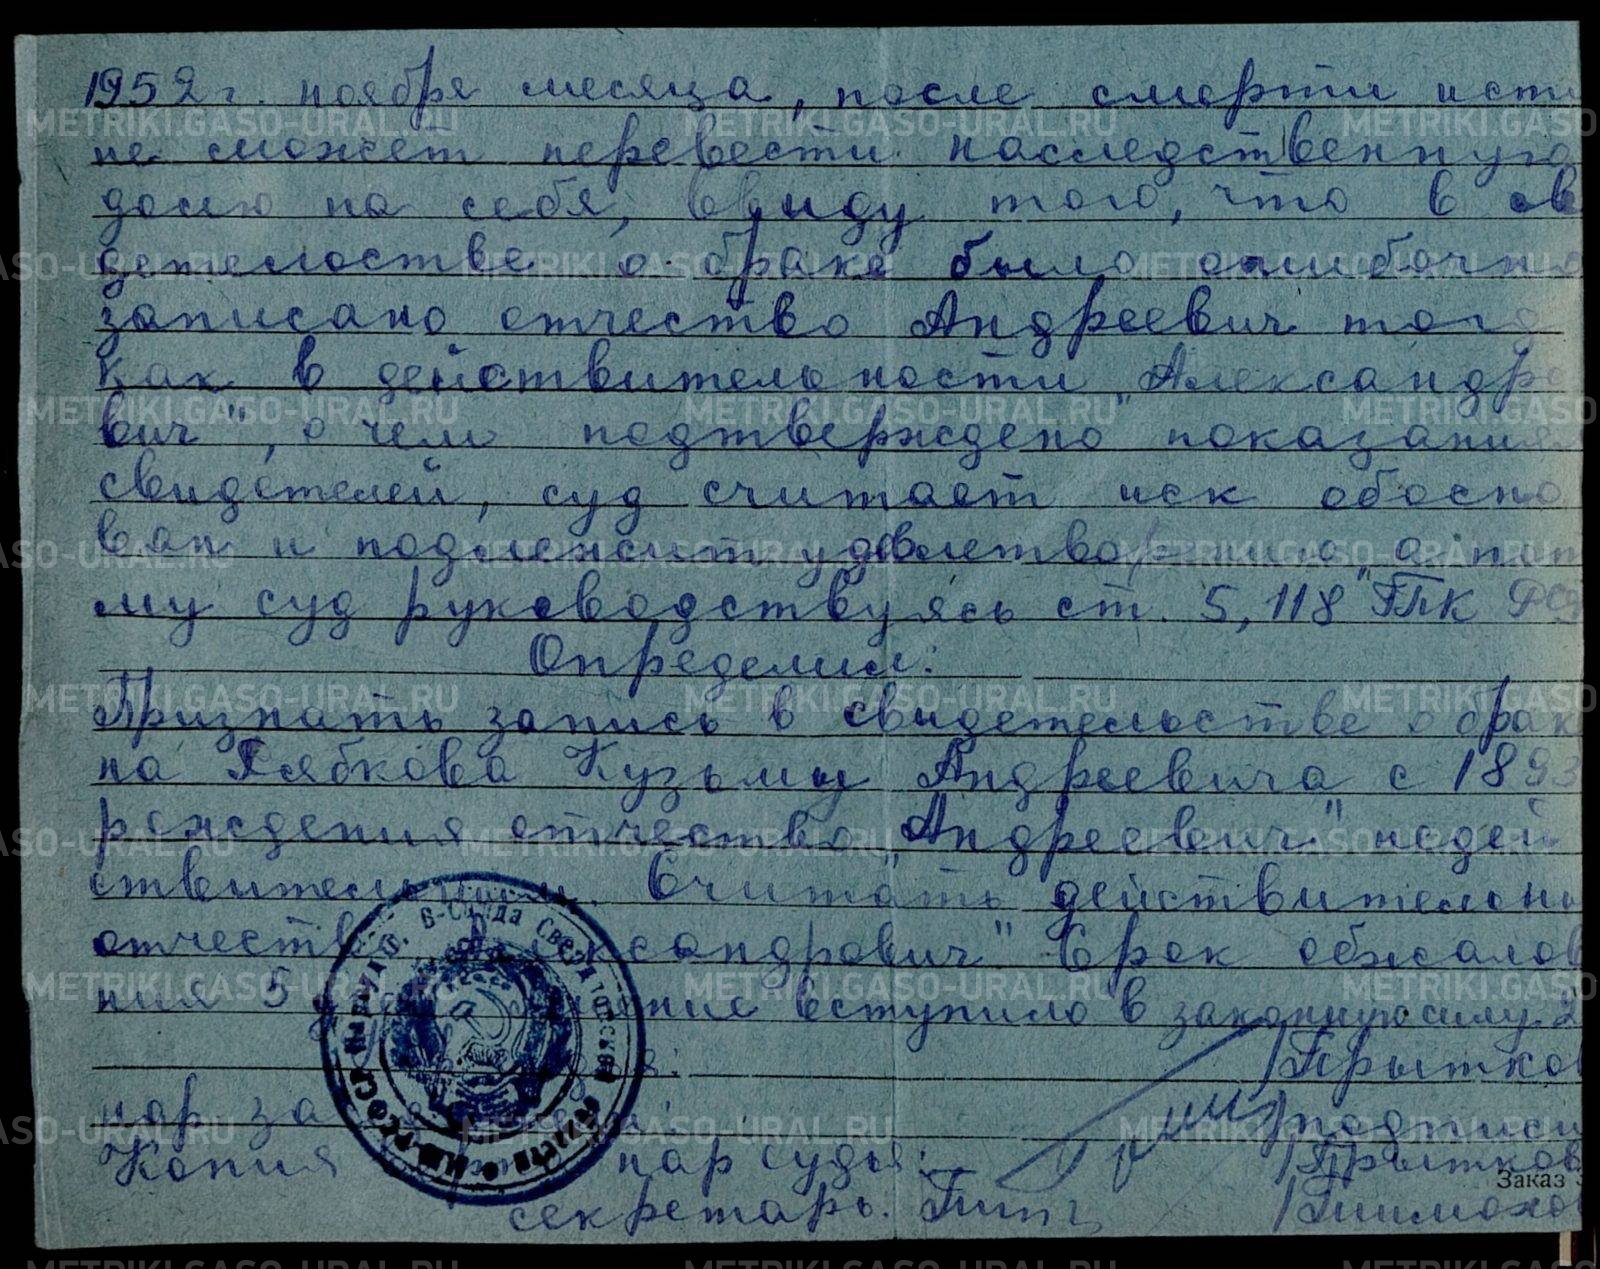 1952 г. ноября месяца, после смерти ист
не сможет перевести наследственную
долю на себя, ввиду того, что в св
детельстве о браке было ошибочно
записано отчество Андреевич тогд
как в действительности "Александро
вич", о чем подтверждено показания
свидетелей, суд считает иск обосно
ван и подлежит удовлетворению, а пот
му суд руководствуясь ст. 5, 118 ГПК РСФ
Определил:
Признать запись в свидетельстве о брак
на Рябкова Кузьмы Андреевича с 1893
рождения отчество "Андреевич" недей
ствительным. Считать действительны
отчество ксандрович" Срок обжалов
ния 5 ение вступило в законную силу. 2
/Прытков
нар за /подписи
Копия нар судья: /Прытков
Заказ
секретарь. /Тимохо
METRIKI.GASO-URAL.RU